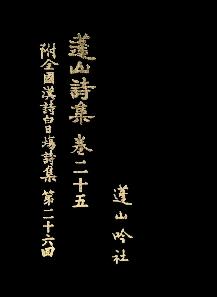 蓬山詩集 卷二十五
附全國漢詩白日場詩集 第二十六回
蓬山吟社